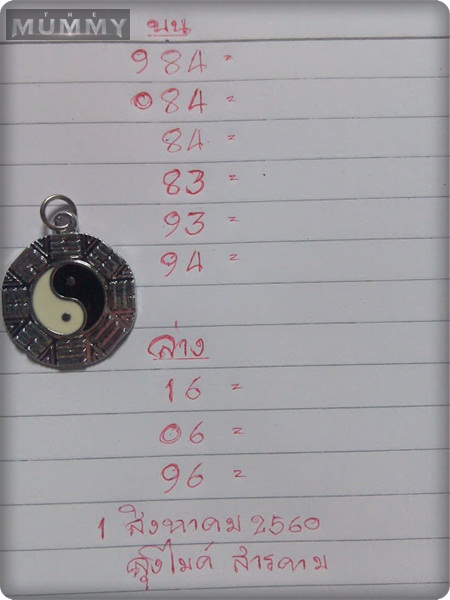 THE
MUMMY
บน
984 =
084 =
84 =
83 =
93 =
94 =
ล่าง
16 =
06 =
96 =
1 สิงหาคม 2560
ลุงไมค์ สารคาม